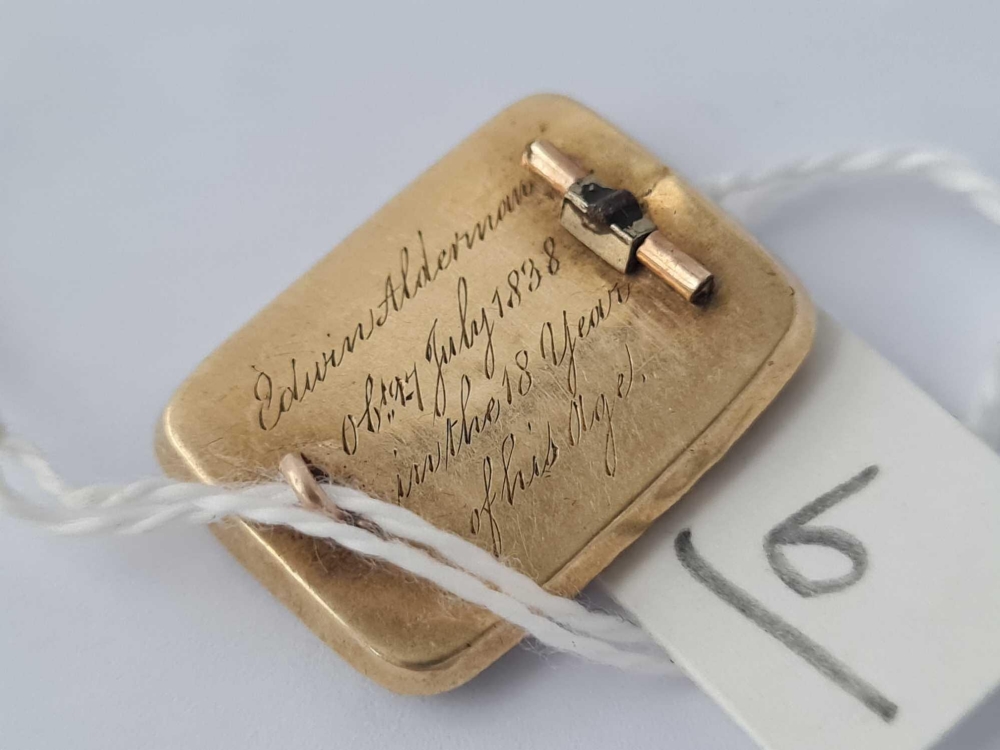 Edwin Alderman
Obt. 27 July 1838
in the 18 Year
of his Age.
16